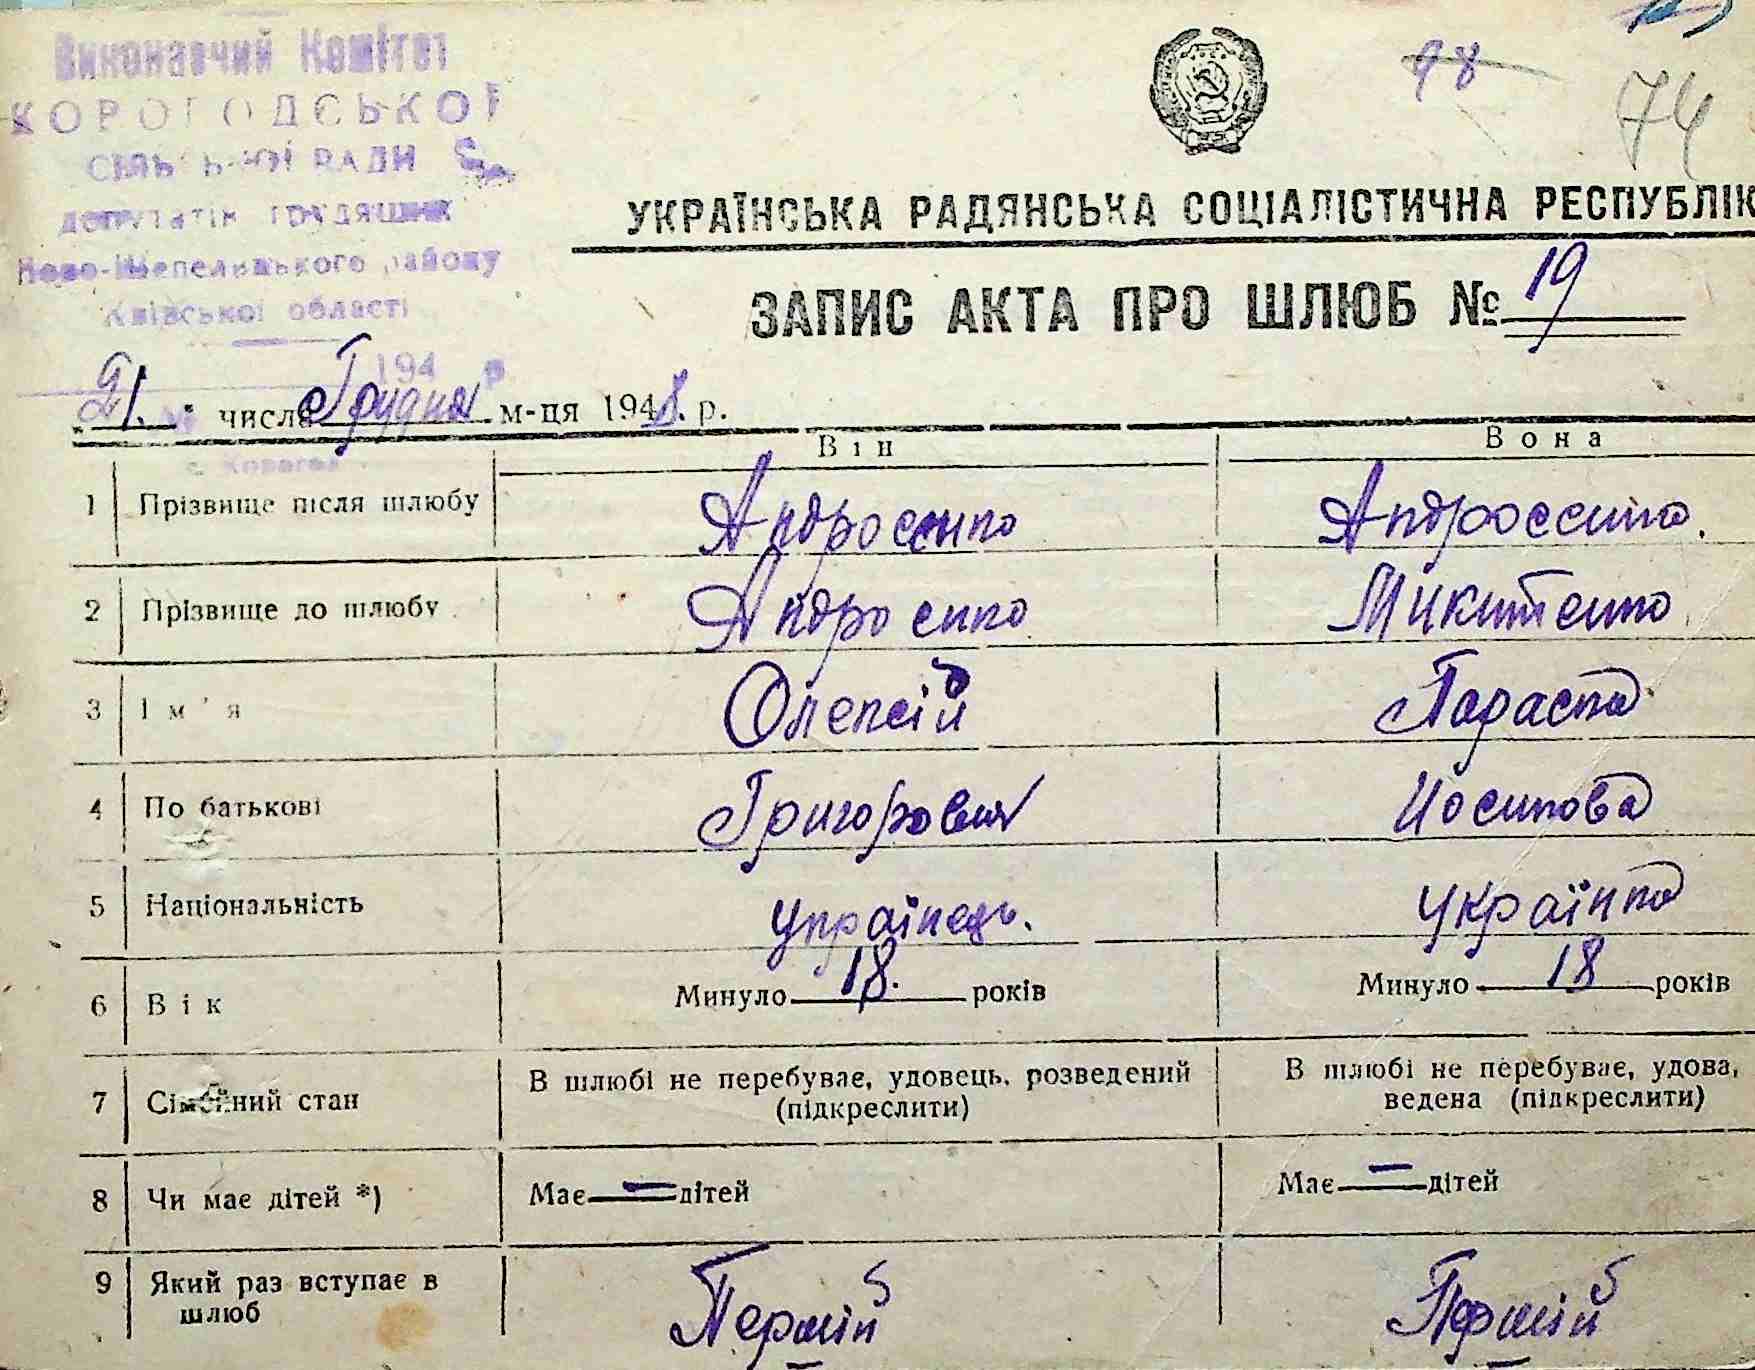 Виконавчий Комітет
КОРОГОДСЬКОЇ
СІЛЬСЬКОЇ РАДИ
ДЕПУТАТІВ ТРУДЯЩИХ
Ново-Шепелицького району
Київської області
98
74
УКРАЇНСЬКА РАДЯНСЬКА СОЦІАЛІСТИЧНА РЕСПУБЛІК
ЗАПИС АКТА ПРО ШЛЮБ № 19
194 р
21. числа Грудня м-ця 1948. р.
с. Корогод
Він Вона
1 Прізвище після шлюбу Андросенко Андроссенко.
2 Прізвище до шлюбу Андросенко Микитенко
3 Ім'я Олексій Параска
4 По батькові Григорович Иосипова
5 Національність Українець. Українка
6 Вік Минуло 18. років Минуло 18 років
7 Сімейний стан В шлюбі не перебуває, удовець, розведений (підкреслити) В шлюбі не перебуває, удова, ведена (підкреслити)
8 Чи має дітей *) Має — дітей Має — дітей
9 Який раз вступає в шлюб Першій Першій